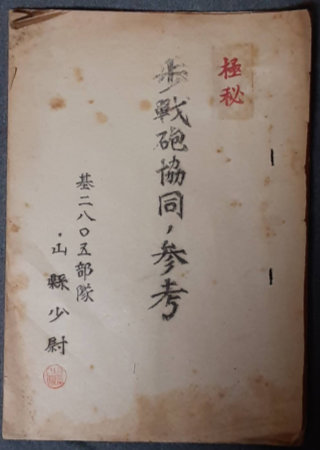 極秘
歩戦砲協同ノ参考
基二八〇五部隊
山縣少尉